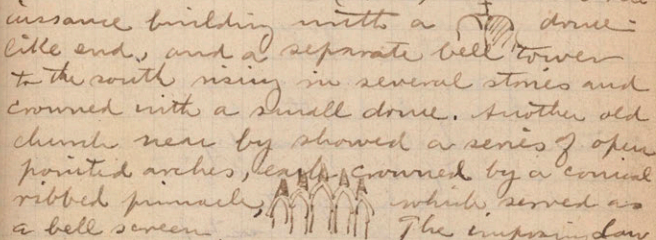 issance building with a dome-
like end, and a separate bell tower
to the south rising in several stories and
crowned with a small dome. Another old
church near by showed a series of open
pointed arches, each crowned by a conical
ribbed pinnacle, which served as
a bell screen. The imposing Law